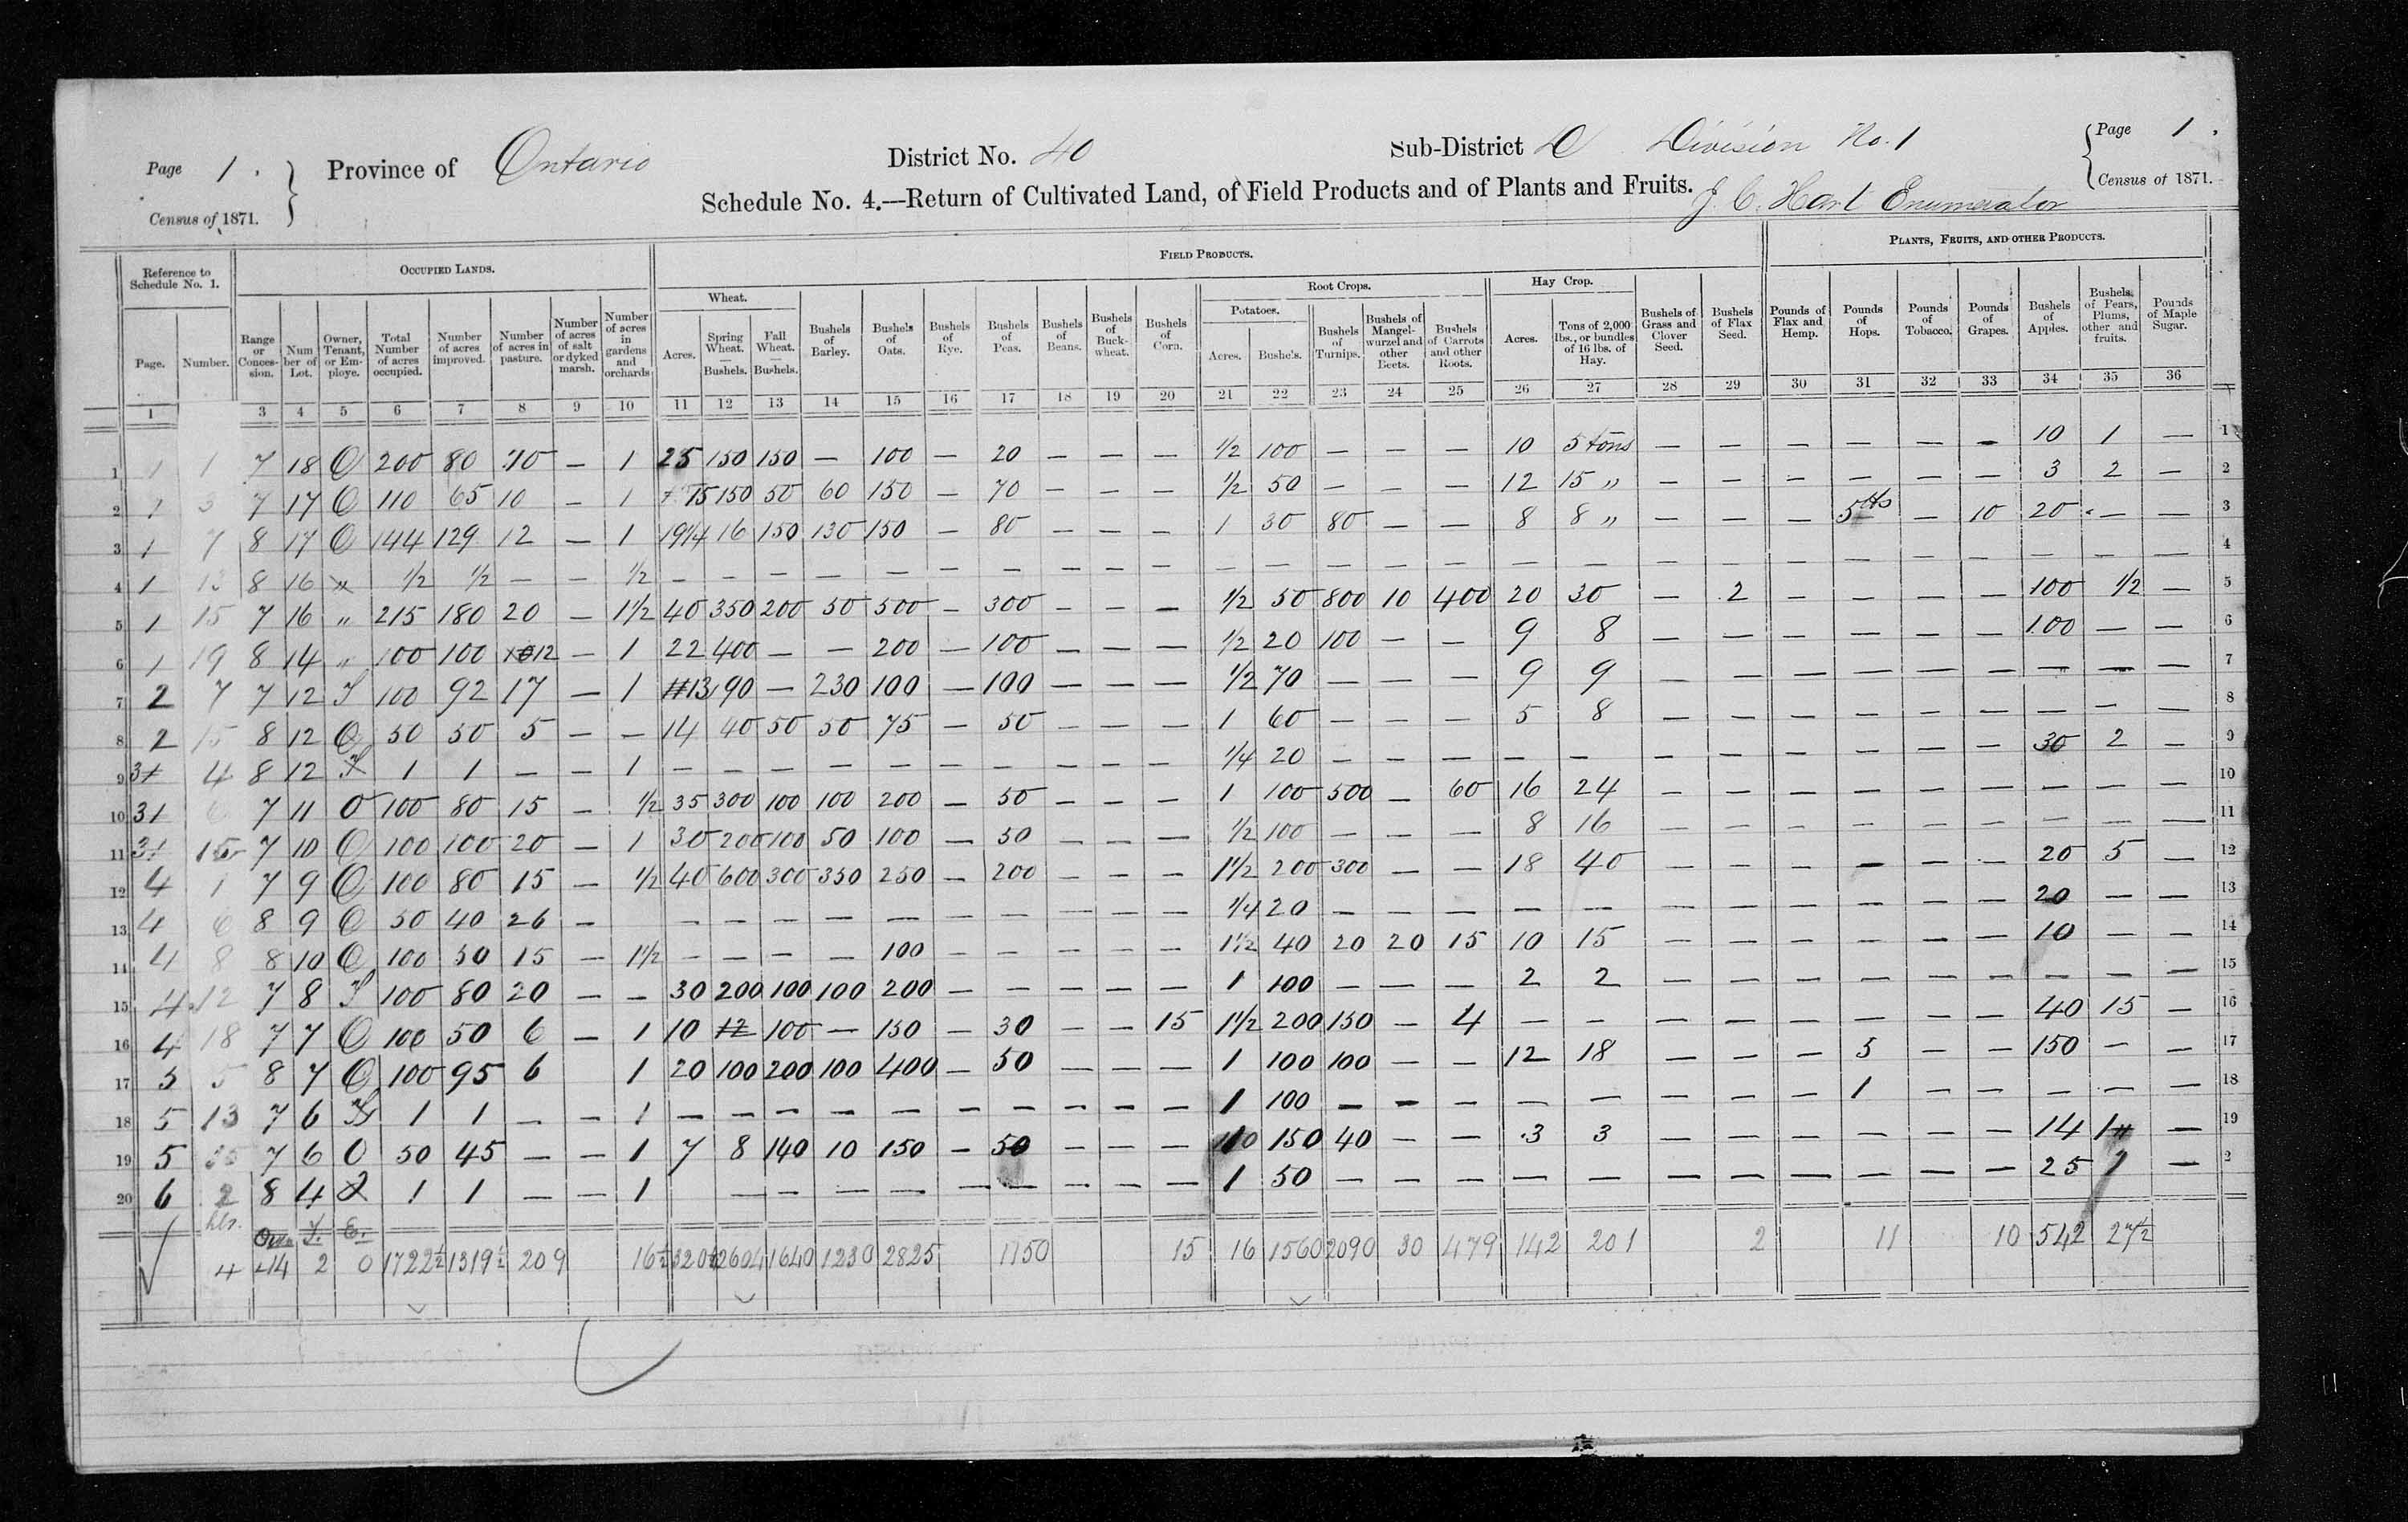 Page 1. Province of Ontario District No. 40 Sub-District D Division No. 1 Page 1.
Census of 1871. Schedule No. 4.—Return of Cultivated Land, of Field Products and of Plants and Fruits. J. C. Hart Enumerator Census of 1871.
Reference to Schedule No. 1. OCCUPIED LANDS. FIELD PRODUCTS. PLANTS, FRUITS, AND OTHER PRODUCTS.
Wheat. Root Crops. Hay Crop.
Potatoes.
Page. Number. Range or Conces-sion. Num ber of Lot. Owner, Tenant, or Em-ploye. Total Number of acres occupied. Number of acres improved. Number of acres in pasture. Number of acres of salt or dyked marsh. Number of acres in gardens and orchards Acres. Spring Wheat. — Bushels. Fall Wheat. — Bushels. Bushels of Barley. Bushels of Oats. Bushels of Rye. Bushels of Peas. Bushels of Beans. Bushels of Buck-wheat. Bushels of Corn. Acres. Bushe's. Bushels of Turnips. Bushels of Mangel-wurzel and other Beets. Bushels of Carrots and other Roots. Acres. Tons of 2,000 lbs., or bundles of 16 lbs. of Hay. Bushels of Grass and Clover Seed. Bushels of Flax Seed. Pounds of Flax and Hemp. Pounds of Hops. Pounds of Tobacco. Pounds of Grapes. Bushels of Apples. Bushels of Pears, Plums, other and fruits. Pounds of Maple Sugar.
1 3 4 5 6 7 8 9 10 11 12 13 14 15 16 17 18 19 20 21 22 23 24 25 26 27 28 29 30 31 32 33 34 35 36
1 1 1 7 18 O 200 80 10 — 1 25 150 150 — 100 — 20 — — — 1/2 100 — — — 10 5 tons — — — — — — 10 1 — 1
2 1 3 7 17 O 110 65 10 — 1 15 150 50 60 150 — 70 — — — 1/2 50 — — — 12 15 " — — — — — — 3 2 — 2
3 1 7 8 17 O 144 129 12 — 1 19 1/4 16 150 130 150 — 80 — — — 1 30 80 — — 8 8 " — — — 5 lbs — 10 20 — — 3
4 1 13 8 16 " 1/2 1/2 — — 1/2 — — — — — — — — — — — — — — — — — — — — — — — — — — 4
5 1 15 7 16 " 215 180 20 — 1 1/2 40 350 200 50 500 — 300 — — — 1/2 50 800 10 400 20 30 — 2 — — — — 100 1/2 — 5
6 1 19 8 14 " 100 100 12 — 1 22 400 — — 200 — 100 — — — 1/2 20 100 — — 9 8 — — — — — — 100 — — 6
7 2 7 7 12 T 100 92 17 — 1 13 90 — 230 100 — 100 — — — 1/2 70 — — — 9 9 — — — — — — — — — 7
8 2 15 8 12 O 50 50 5 — — 14 40 50 50 75 — 50 — — — 1 60 — — — 5 8 — — — — — — — — — 8
9 3 4 8 12 T 1 1 — — 1 — — — — — — — — — — 1/4 20 — — — — — — — — — — — 30 2 — 9
10 31 6 7 11 O 100 80 15 — 1/2 35 300 100 100 200 — 50 — — — 1 100 500 — 60 16 24 — — — — — — — — — 10
11 3 15 7 10 O 100 100 20 — 1 30 200 100 50 100 — 50 — — — 1/2 100 — — — 8 16 — — — — — — — — — 11
12 4 1 7 9 O 100 80 15 — 1/2 40 600 300 350 250 — 200 — — — 1 1/2 200 300 — — 18 40 — — — — — — 20 5 — 12
13 4 6 8 9 O 50 40 26 — — — — — — — — — — — 1/4 20 — — — — — — — — — — — 20 — — 13
14 4 8 8 10 O 100 50 15 — 1 1/2 — — — — 100 — — — — — 1 1/2 40 20 20 15 10 15 — — — — — — 10 — — 14
15 4 12 7 8 T 100 80 20 — — 30 200 100 100 200 — — — — — 1 100 — — — 2 2 — — — — — — — — — 15
16 4 18 7 7 O 100 50 6 — 1 10 12 100 — 150 — 30 — — 15 1 1/2 200 150 — 4 — — — — — — — — 40 15 — 16
17 5 5 8 7 O 100 95 6 1 20 100 200 100 400 — 50 — — — 1 100 100 — — 12 18 — — — 5 — — 150 — — 17
18 5 13 7 6 T 1 1 — — 1 — — — — — — — — — — 1 100 — — — — — — — — 1 — — — — — 18
19 5 7 6 O 50 45 — — 1 7 8 140 10 150 — 50 — — — 150 40 — — 3 3 — — — — — — 14 1 — 19
20 6 2 8 4 1 1 — — 1 — — — — — — — — — 1 50 — — — — — — — — — — — 25 — 2
T. E.
4 14 2 0 1722 1/2 1319 1/2 209 16 1/2 320 1/4 2604 1640 1230 2825 1150 15 16 1560 2090 30 479 142 201 2 11 10 542 27 1/2